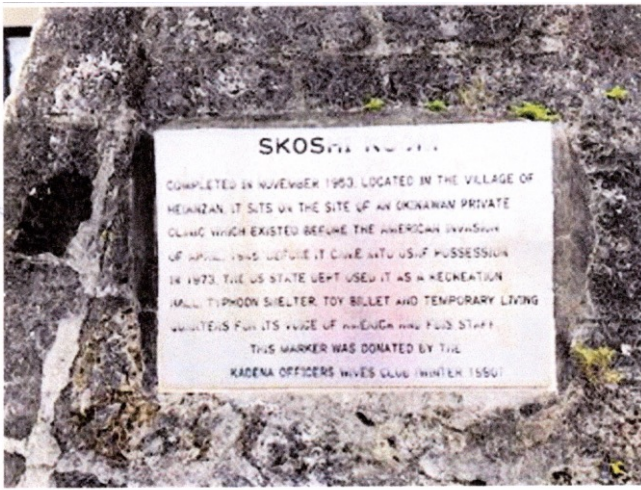 COMPLETED IN NOVEMBER 1953. LOCATED IN THE VILLAGE OF
IT SITS ON THE SITE OF AN OKINAWAN PRIVATE
CLINIC WHICH EXISTED BEFORE THE AMERICAN INVASION
OF APRIL 1945. BEFORE IT CAME INTO USAF POSSESSION
IN 1973, THE US STATE DEPT USED IT AS A RECREATION
HALL, TYPHOON SHELTER, TDY BILLET AND TEMPORARY LIVING
QUARTERS FOR ITS VOICE OF AMERICA AND FBIS STAFF
THIS MARKER WAS DONATED BY THE
KADENA OFFICERS WIVES CLUB (WINTER